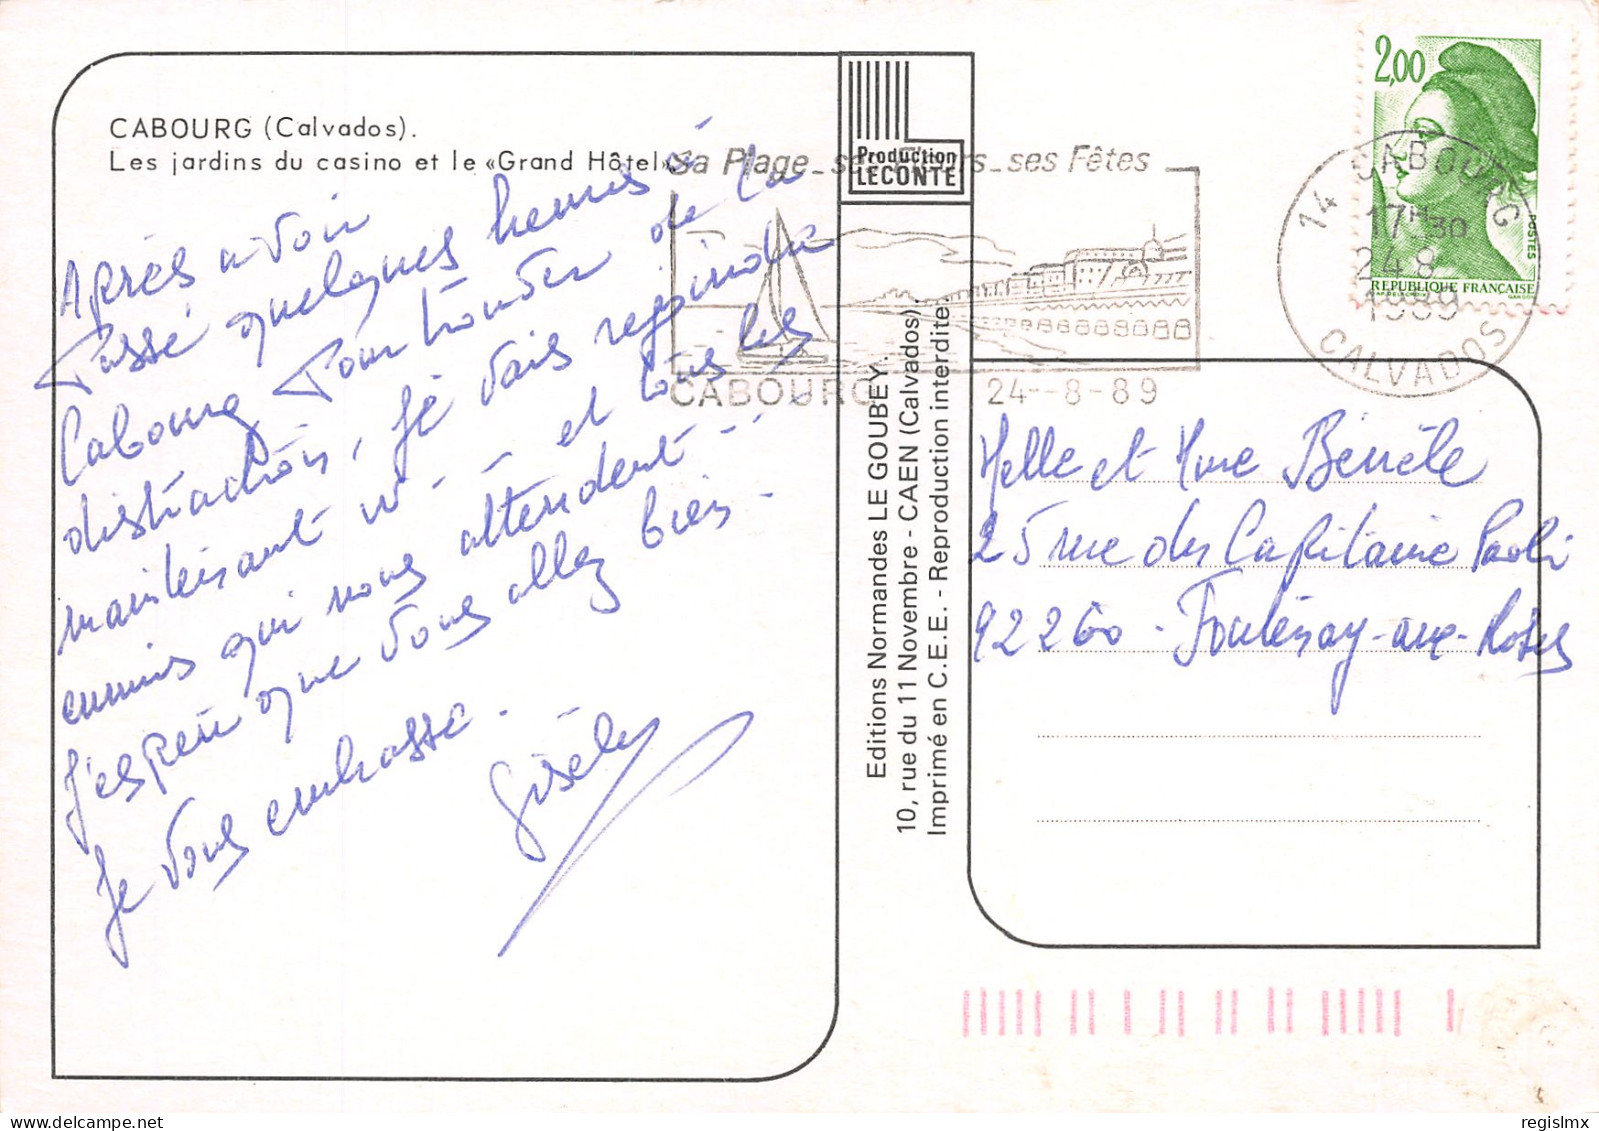 CABOURG (Calvados).
Les jardins du casino et le «Grand Hôtel».
Après avoir
passé quelques heures à
Cabourg pour trouver de la
distraction, je vais rejoindre
maintenant et tous les
qui nous attendent...
J'espère que vous allez bien.
Je vous embrasse.
Gisèle
Production
LECONTE
Editions Normandes LE GOUBEY.
10, rue du 11 Novembre - CAEN (Calvados).
Imprimé en C.E.E. - Reproduction interdite.
Sa Plage_ses Fleurs_ses Fêtes
CABOURG
24-8-89
14 CABOURG
17H30
24 8
1989
CALVADOS
2,00
POSTES
REPUBLIQUE FRANÇAISE
D'AP. DELACROIX
GANDON
Melle et Mme
25 rue du Capitaine Paoli
92260 - Fontenay-aux-Roses
regislmx